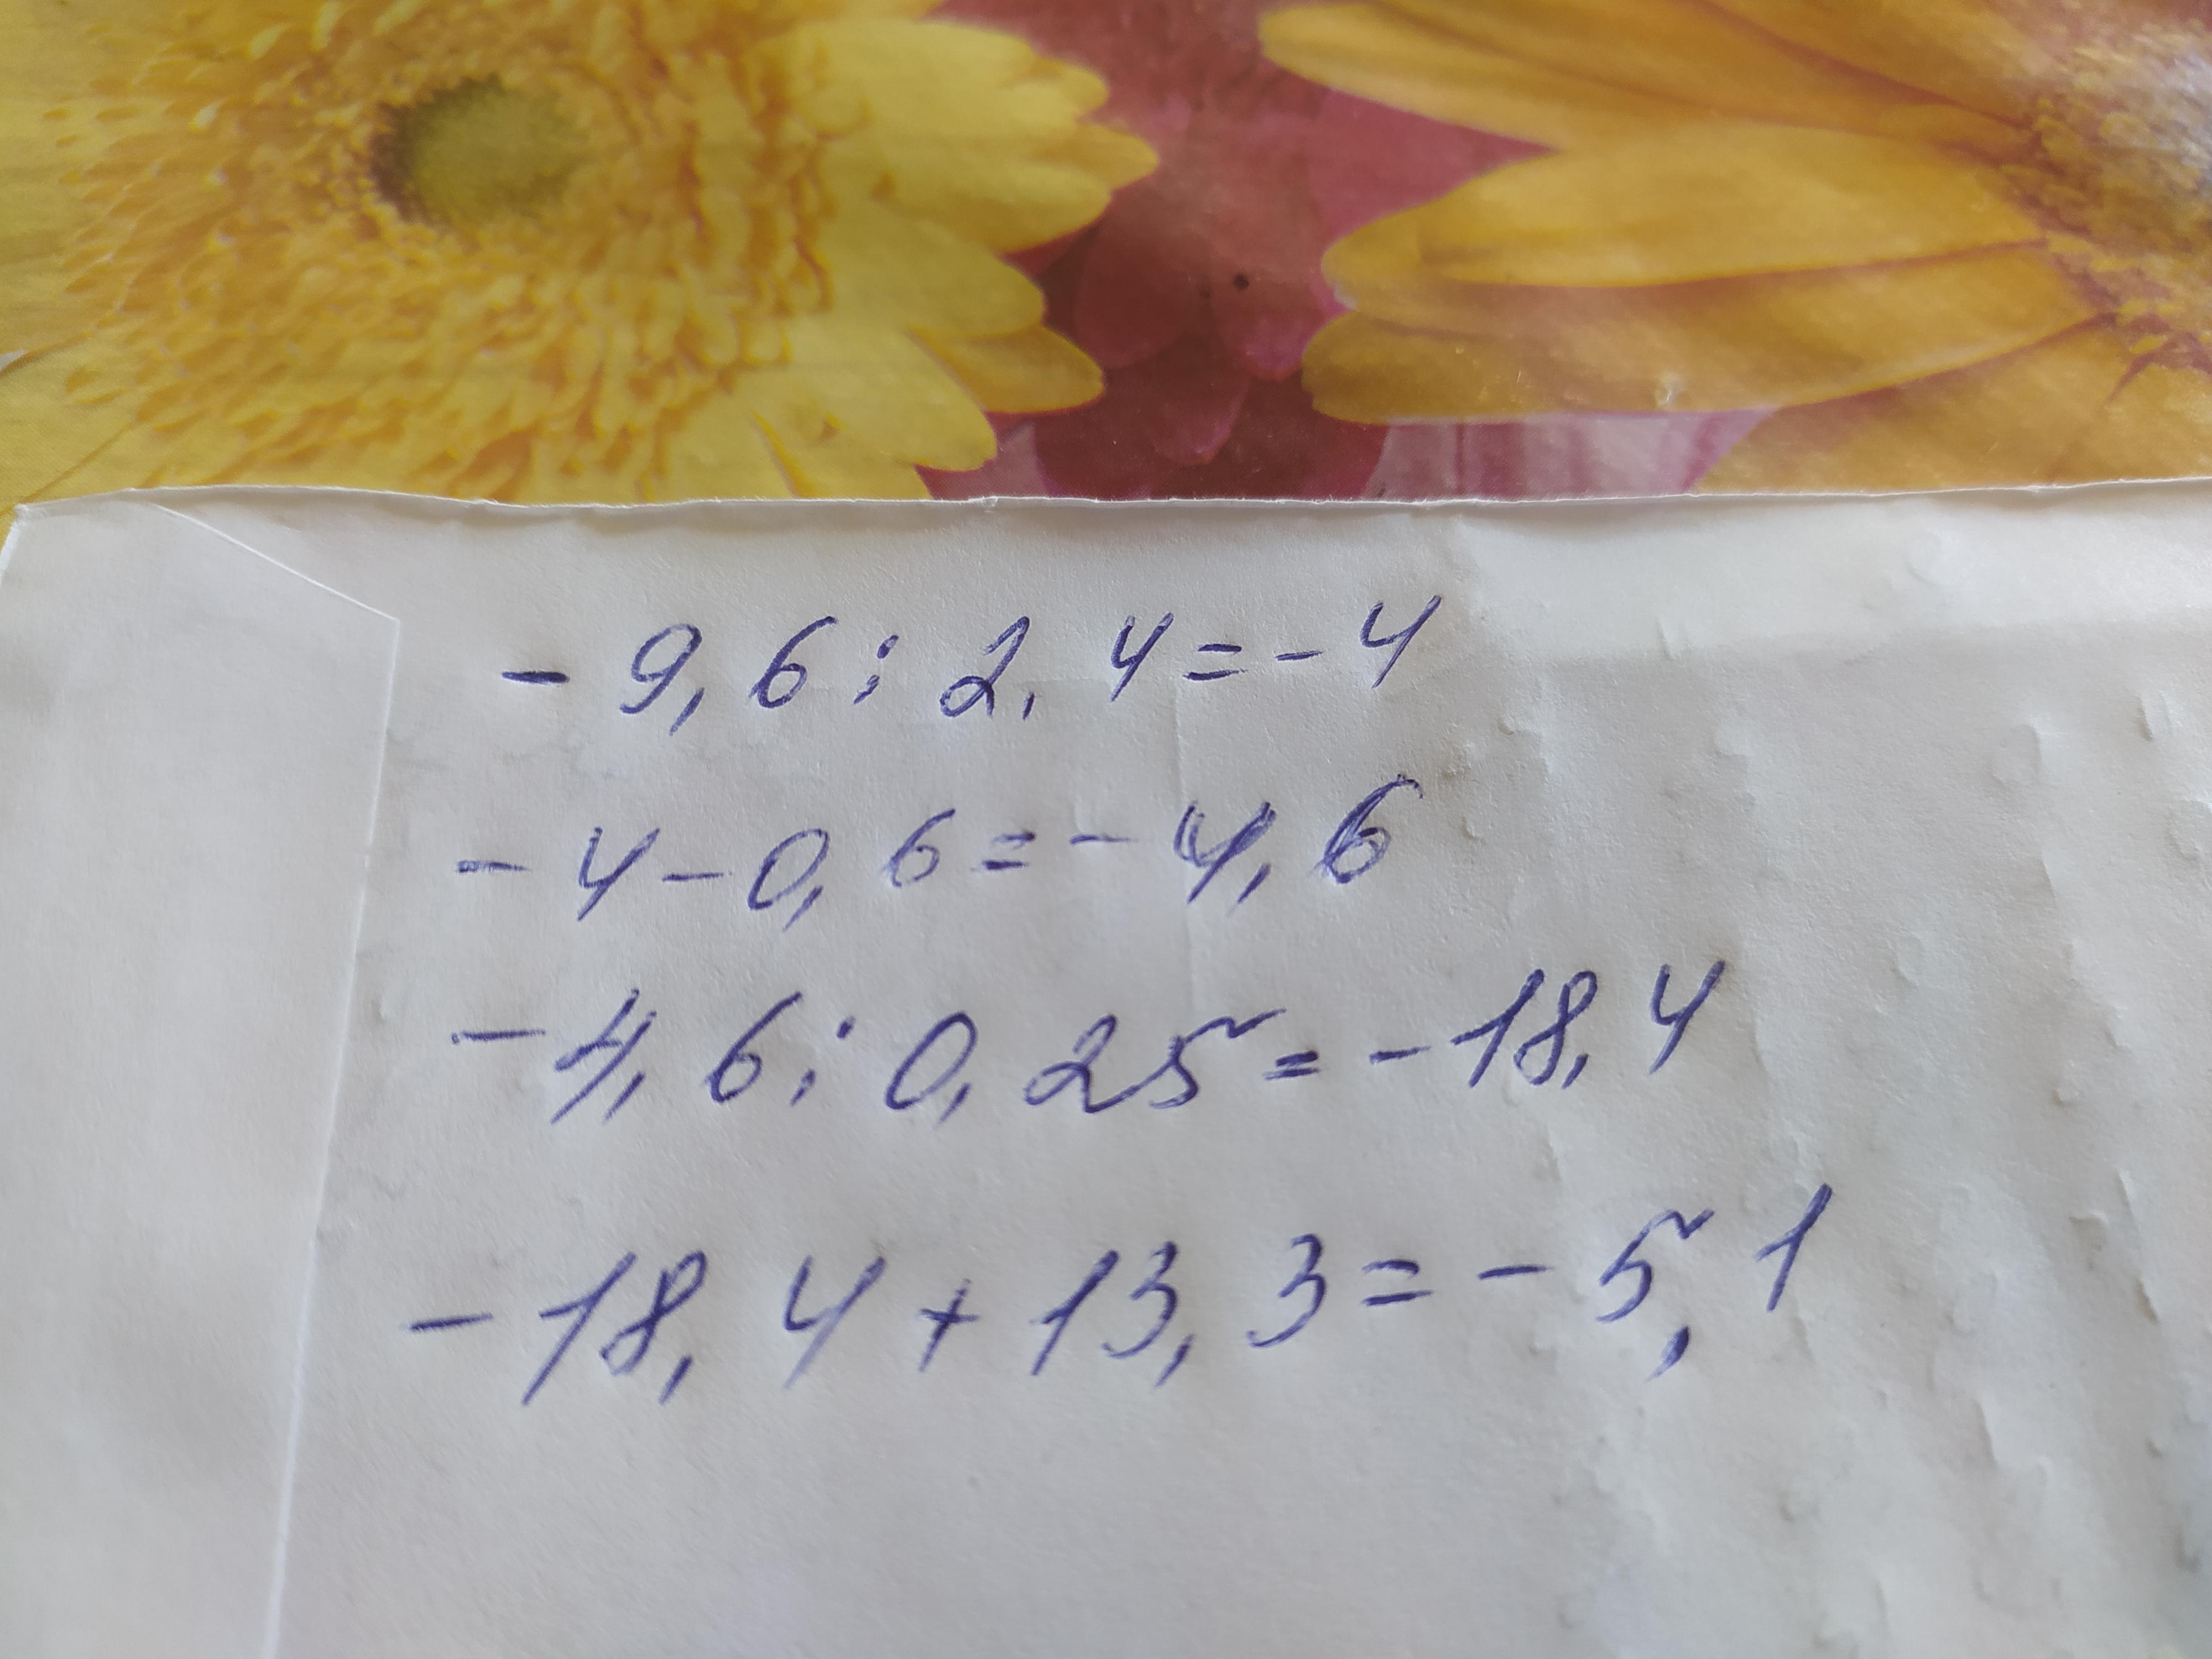 - 9,6 : 2,4 = - 4
- 4 - 0,6 = - 4,6
- 4,6 : 0,25 = - 18,4
- 18,4 + 13,3 = - 5,1